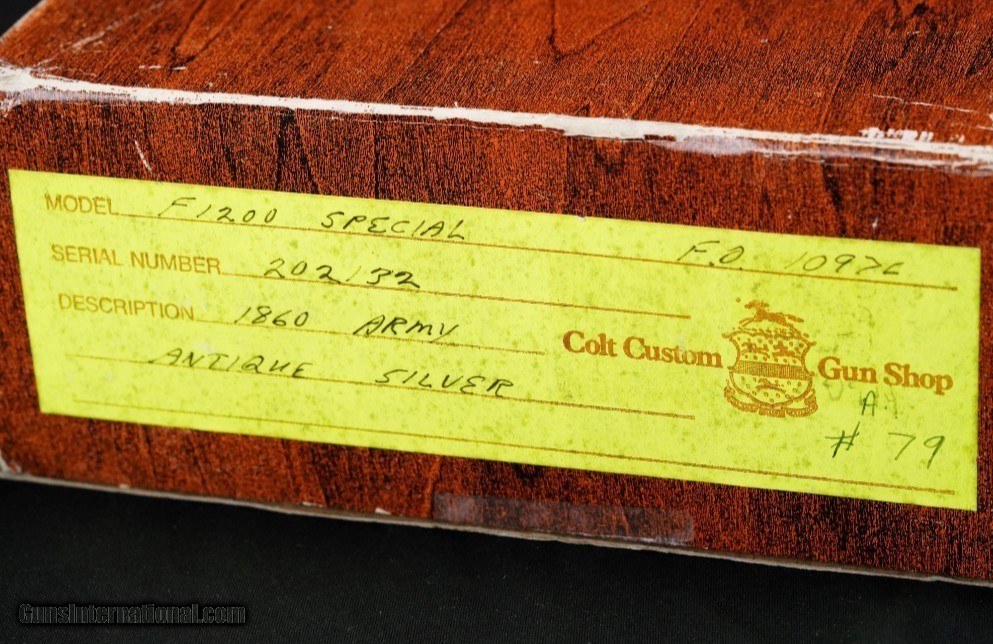 MODEL F1200 SPECIAL F.O. 10976
SERIAL NUMBER 202132
DESCRIPTION 1860 ARMY
ANTIQUE SILVER
Colt Custom Gun Shop
A
# 79
GunsInternational.com